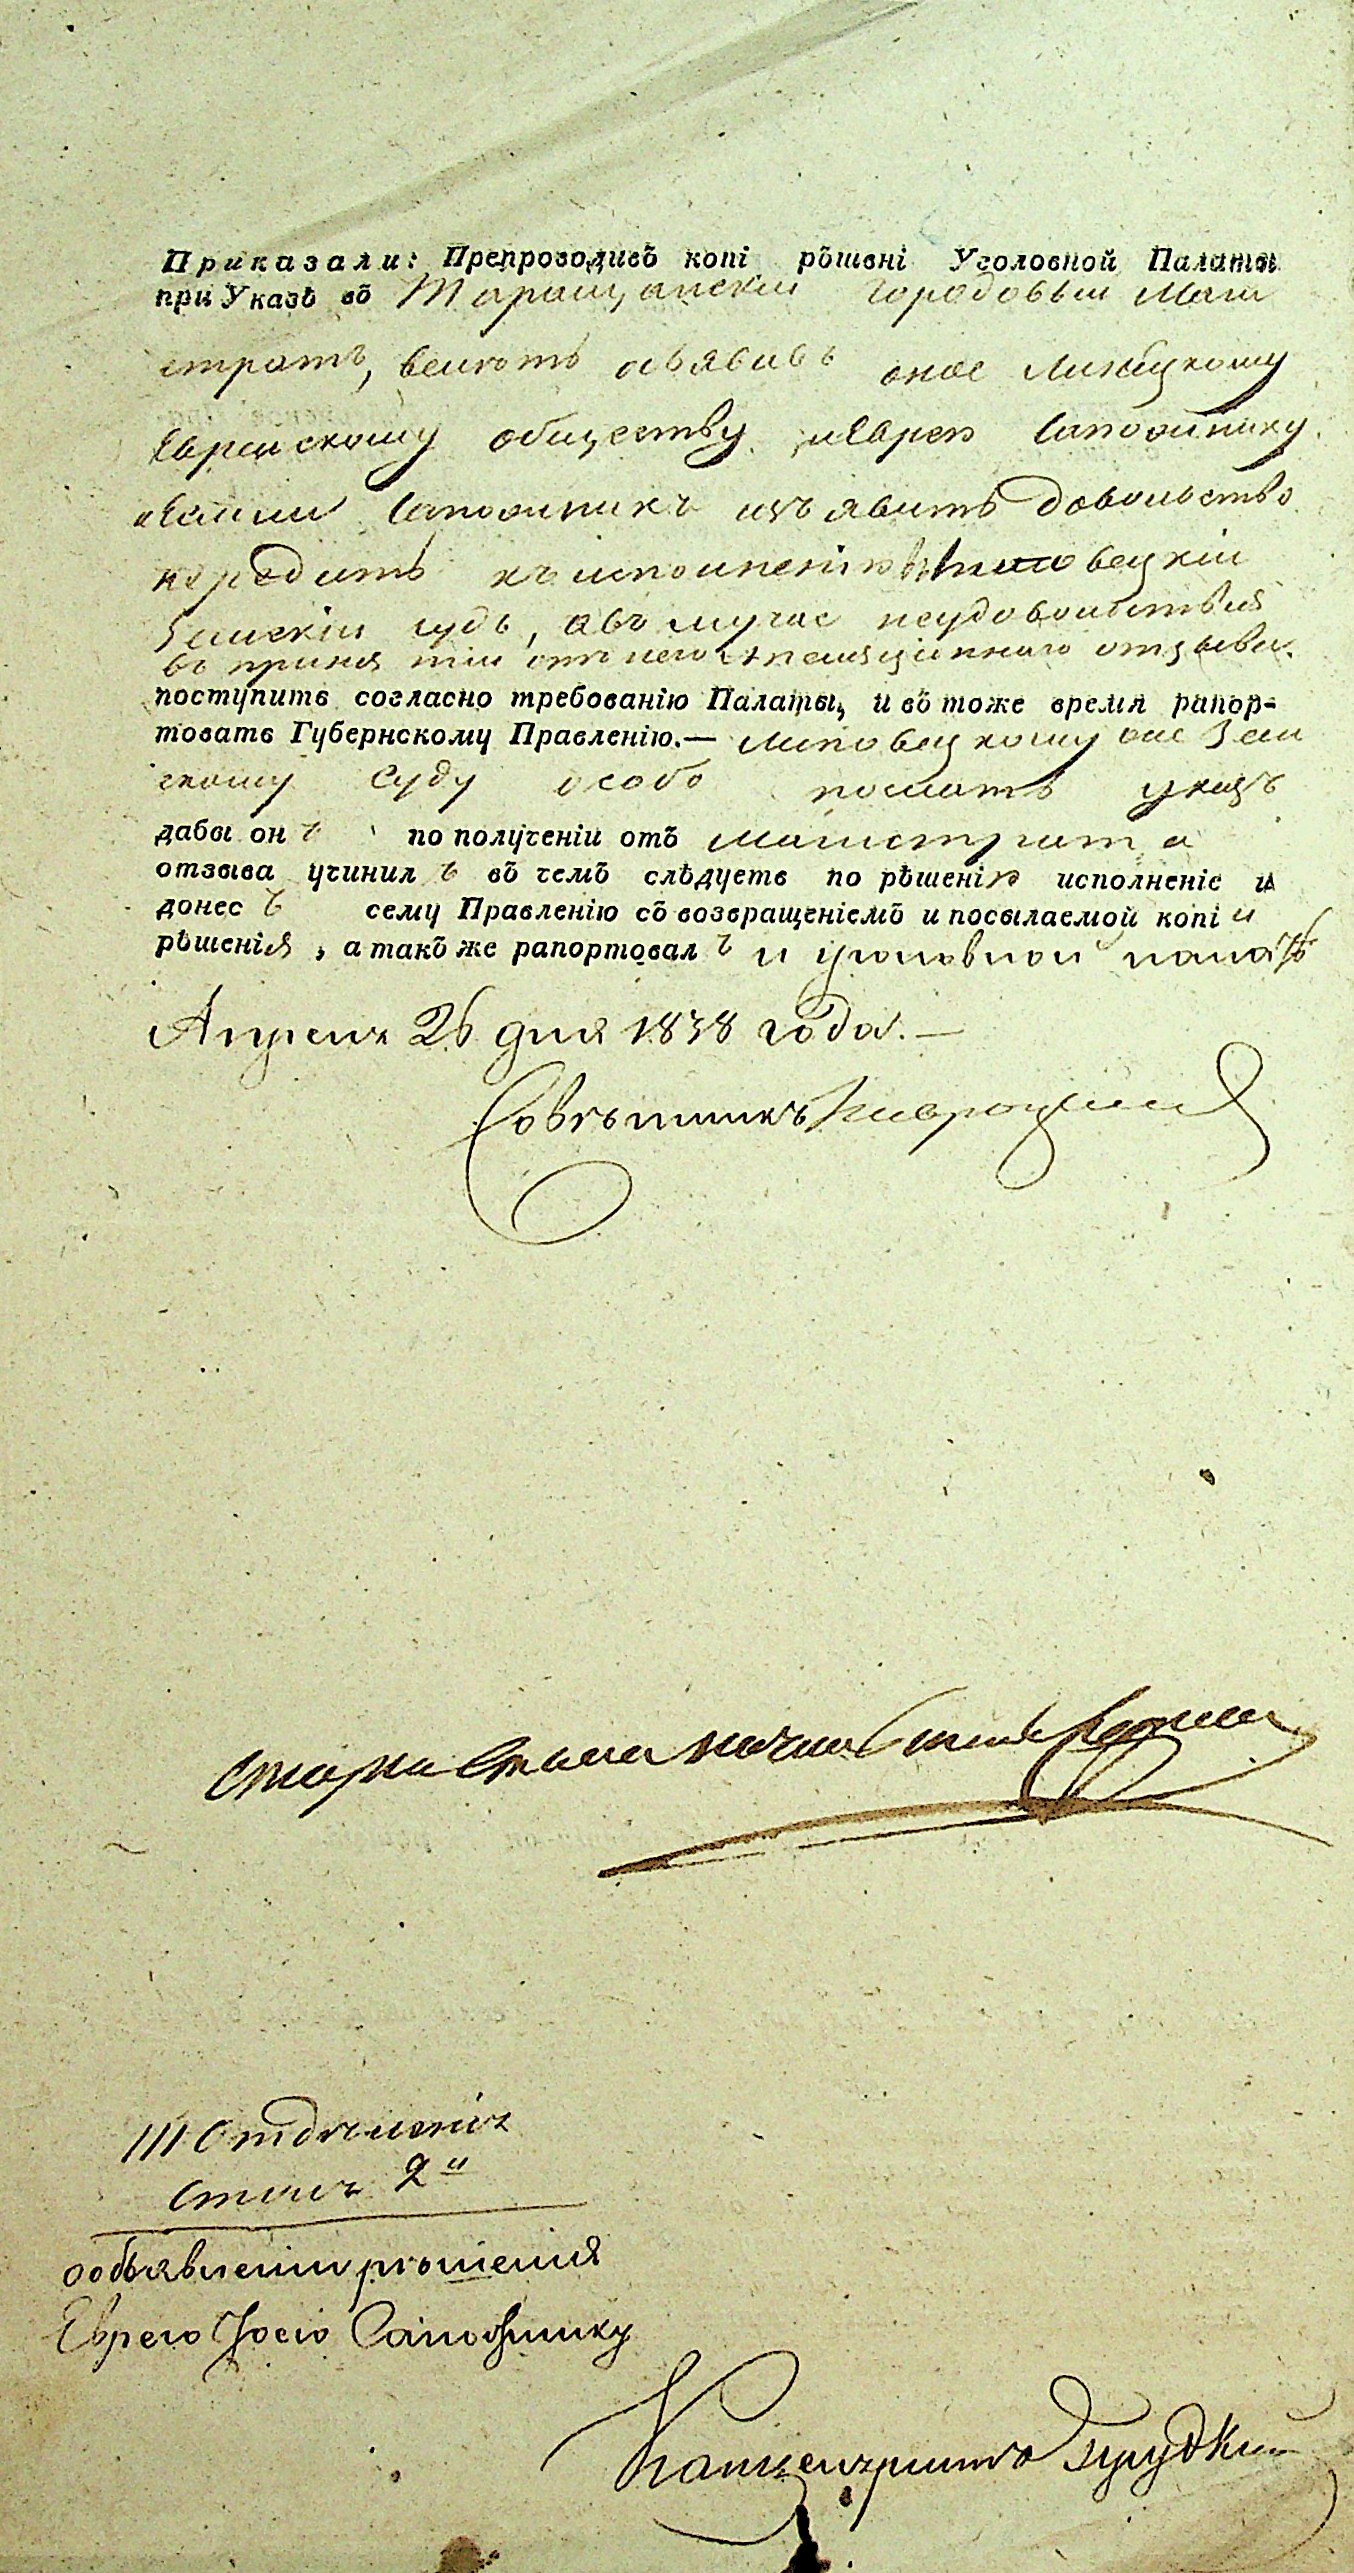 Приказали: Препроводивъ копі рѣшені Уголовной Палаты
при Указѣ въ Таращанскій Городовый Маги
стратъ, велѣть объявивъ оное Линецкому
Еврейскому обществу и Еврею Сапожнику
и если Сапожникъ изъявитъ довольство
передать къ исполненію въ Липовецкій
Земскій судъ, авъ случае неудовольствія
въ принятіи отъ него аппеляціоннаго отзыва
поступить согласно требованію Палаты, и въ тоже время рапор-
товать Губернскому Правленію.— Липовецкому же Зем
скому Суду особо послать указъ
дабы онъ по полученіи отъ Магистрата
отзыва учинилъ въ чемъ слѣдуетъ по рѣшенію исполненіе и
донесъ сему Правленію съ возвращеніемъ и посылаемой копіи
рѣшенія, а такъ же рапортовалъ и уголовной палатѣ
Апреля 26 дня 1838 года.—
Совѣтникъ
III Отдѣленія
Столъ 2й
о объявленіи рѣшенія
Еврею Іосю Сапожнику
Канцеляристъ